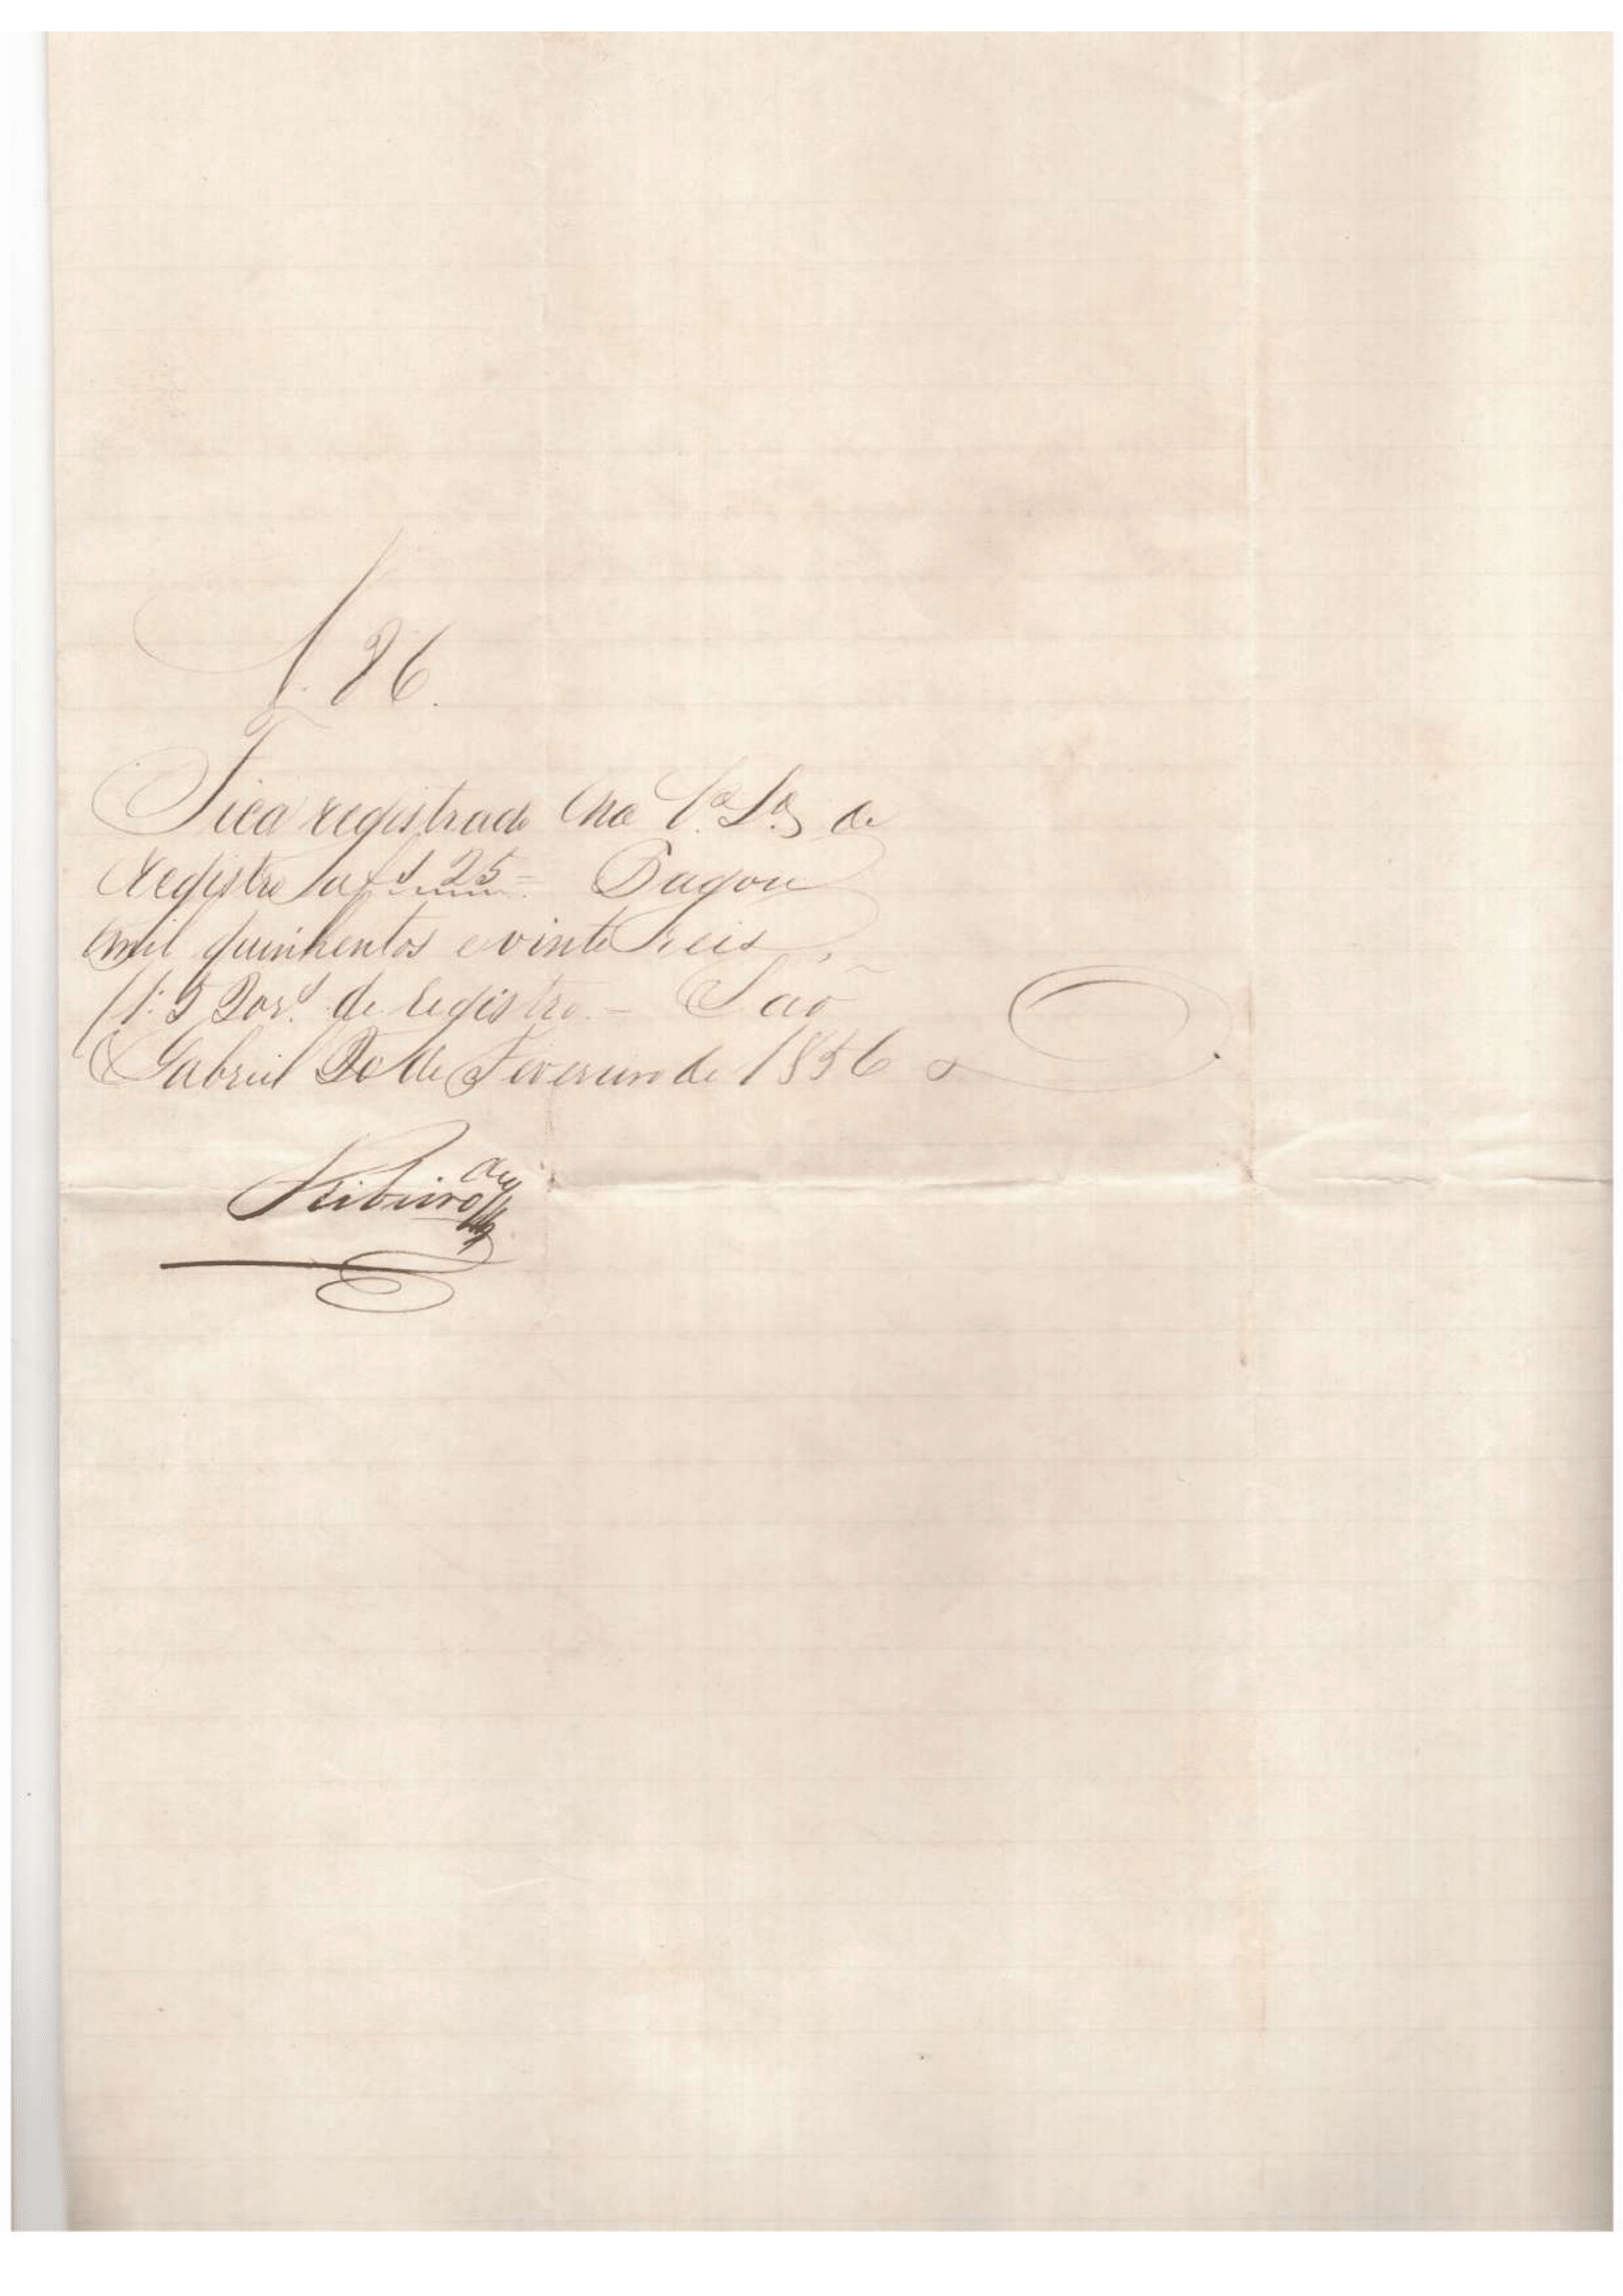 N. 26.
Fica registrado no de
registro a f.s 25 = Pagou
mil quinhentos e vinte reis,
de registro. = São
Gabriel 20 de Fevereiro de 1856
Ribeiro